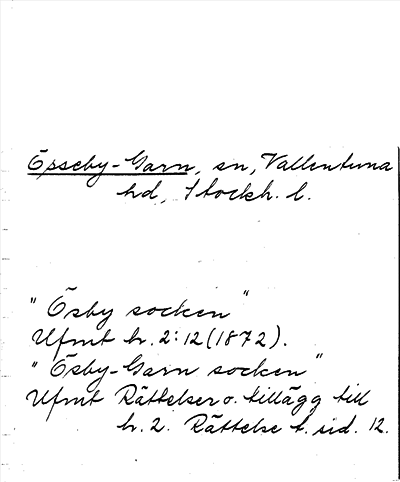 Össeby-Garn, sn, Vallentuna
hd, Stockh. l.
"Ösby socken"
Ufmt h. 2:12 (1872).
"Ösby-Garn socken"
Ufmt Rättelser o. tillägg till
h. 2. Rättelse t. sid. 12.